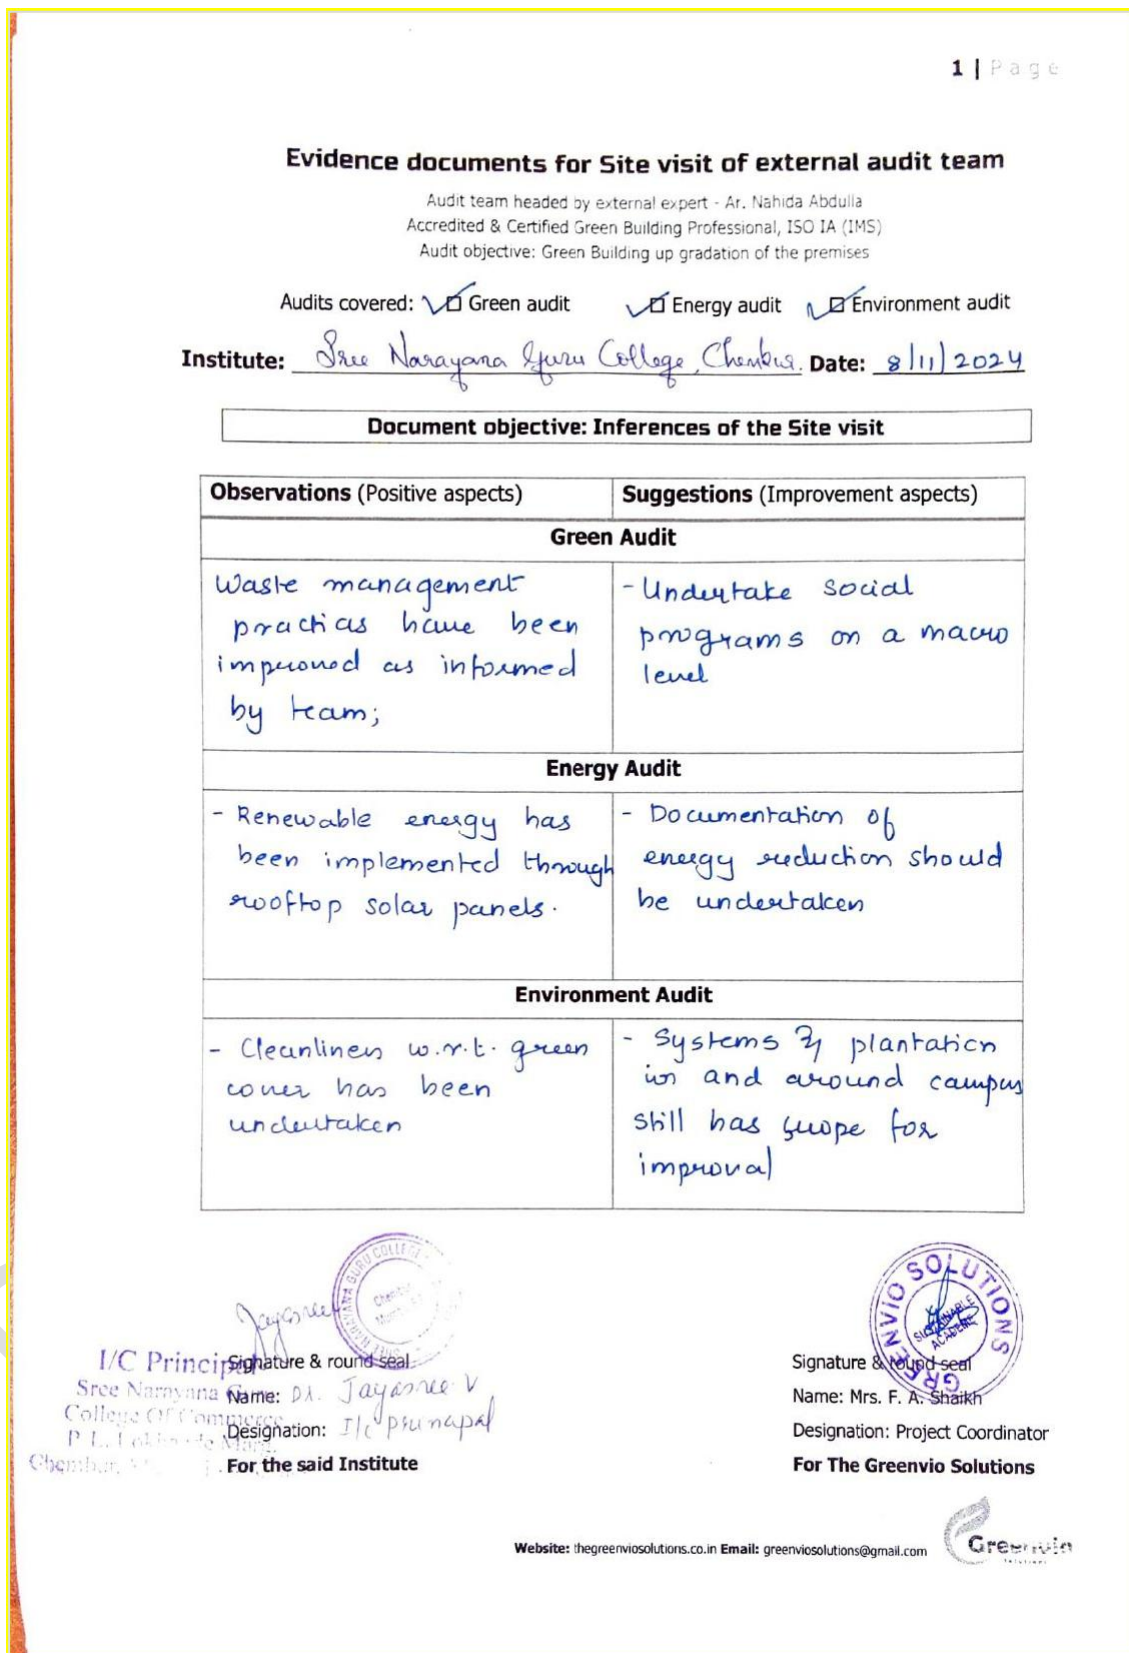 1 | Page
Evidence documents for Site visit of external audit team
Audit team headed by external expert - Ar. Nahida Abdulla
Accredited & Certified Green Building Professional, ISO IA (IMS)
Audit objective: Green Building up gradation of the premises
Audits covered: Green audit Energy audit Environment audit
Institute: Sree Narayana Guru College, Chembur. Date: 8/11/2024
Document objective: Inferences of the Site visit
Observations (Positive aspects) Suggestions (Improvement aspects)
Green Audit
Waste management
practices have been
improved as informed
by team;
- Undertake social
programs on a macro
level
Energy Audit
- Renewable energy has
been implemented through
rooftop solar panels.
- Documentation of
energy reduction should
be undertaken
Environment Audit
- Cleanliness w.r.t. green
cover has been
undertaken
- Systems of plantation
in and around campus
still has scope for
improval
SREE NARAYANA GURU COLLEGE
Chembur
Jayasree
GREENVIO SOLUTIONS
SUSTAINABLE
ACADEME
I/C Principal
Sree Narayana
College Of Commerce
Chembur,
Signature & round seal
Name: Dr. Jayasree V
Designation: I/c Principal
For the said Institute
Signature & round seal
Name: Mrs. F. A. Shaikh
Designation: Project Coordinator
For The Greenvio Solutions
Website: thegreenviosolutions.co.in Email: greenviosolutions@gmail.com
Greenvio
Solutions